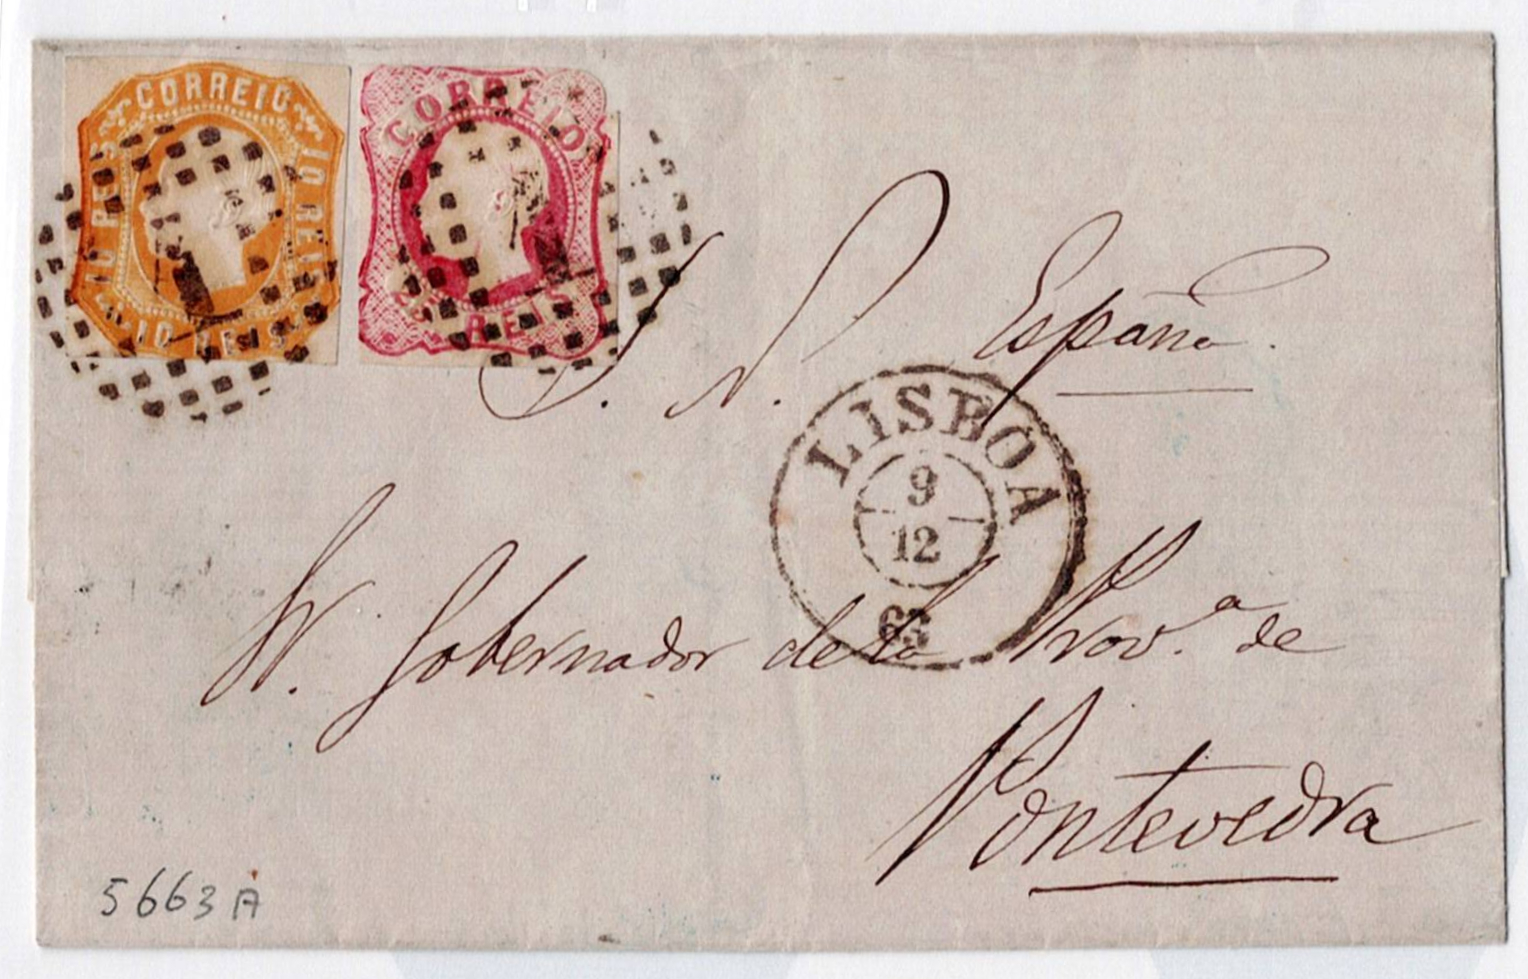 CORREIO
10 REIS
10 REIS
10 REIS
CORREIO
25 REIS
1
1
S. N. España.
LISBOA
9
12
63
Sr. Gobernador de la Prov.ª de
Pontevedra
5663A